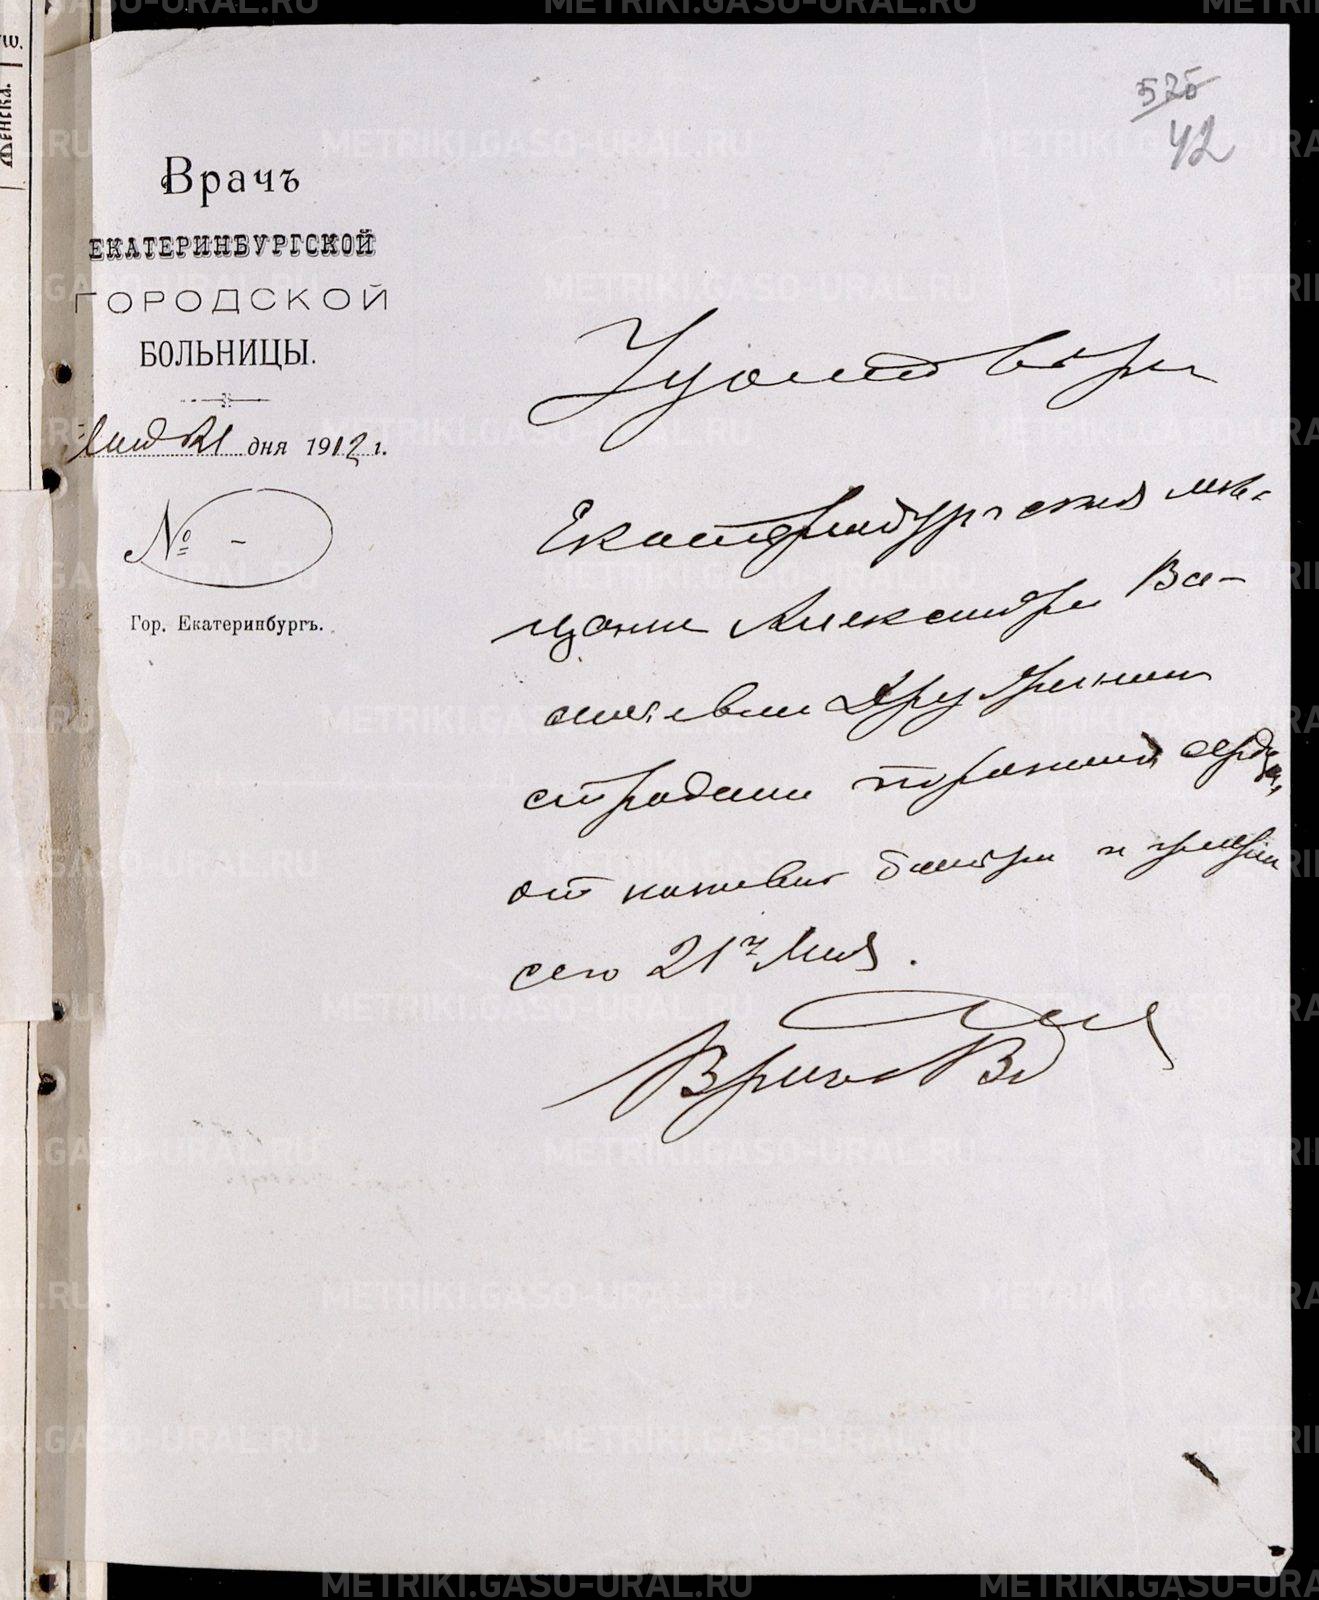 525
42
Врачъ
ЕКАТЕРИНБУРГСКОЙ
ГОРОДСКОЙ
БОЛЬНИЦЫ.
Мая 21 дня 1912 г.
№ -
Гор. Екатеринбургъ.
Удостовѣре
Екатеринбургская мѣ-
щанка Александра Ва-
сильевна
страдала сердца,
от и умерла
сего 21го Мая.
Врачъ
METRIKI.GASO-URAL.RU